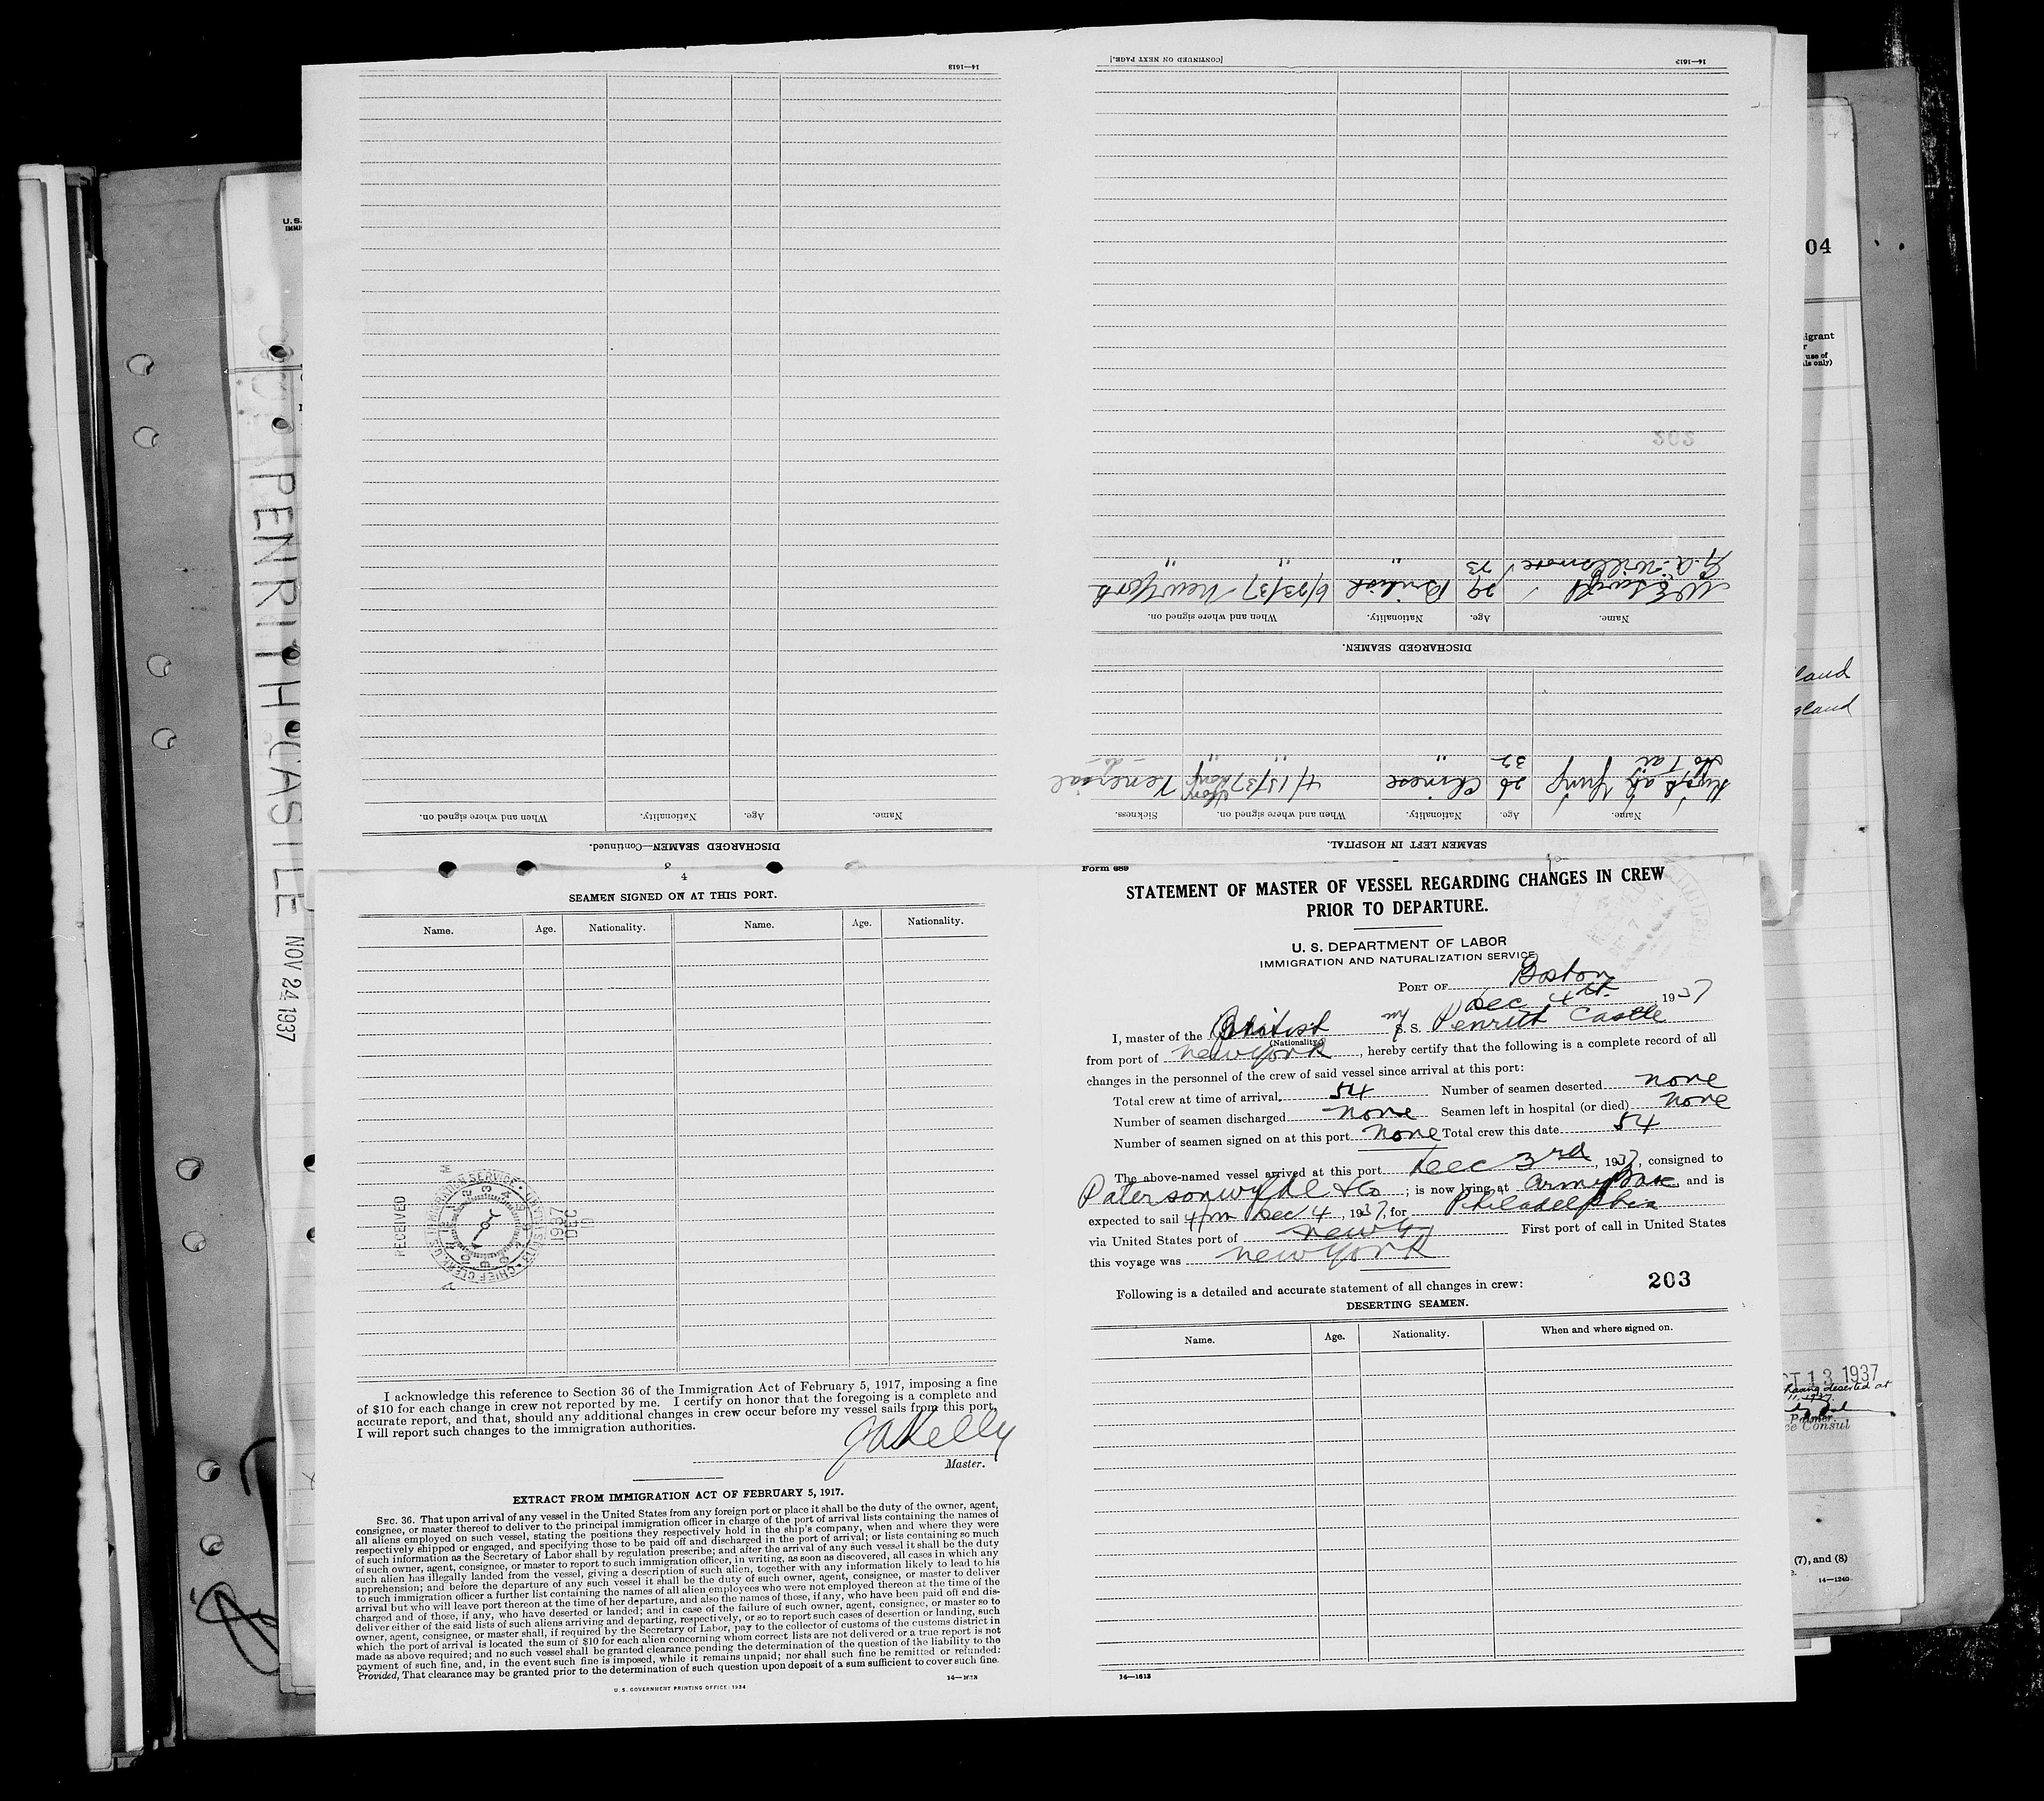 14—1613
[CONTINUED ON NEXT PAGE.]
14—1613
U.S.
04
igrant
use of
ls only)
PENRITH CASTLE NOV 24 1937
SEAMEN LEFT IN HOSPITAL.
Name. Age. Nationality. When and where signed on. Sickness.
26 Chinese 4/13/37 Hong Kong Venereal
Ho Tai 32 " " " do
DISCHARGED SEAMEN.
Name. Age. Nationality. When and where signed on.
29 British 6/23/37 New York
73 " " "
203
land
gland
DISCHARGED SEAMEN—Continued.
Name. Age. Nationality. When and where signed on.
3
4
SEAMEN SIGNED ON AT THIS PORT.
Name. Age. Nationality. Name. Age. Nationality.
RECEIVED
1937 DEC
I acknowledge this reference to Section 36 of the Immigration Act of February 5, 1917, imposing a fine
of $10 for each change in crew not reported by me. I certify on honor that the foregoing is a complete and
accurate report, and that, should any additional changes in crew occur before my vessel sails from this port,
I will report such changes to the immigration authorities.
JA Kelly
Master.
EXTRACT FROM IMMIGRATION ACT OF FEBRUARY 5, 1917.
SEC. 36. That upon arrival of any vessel in the United States from any foreign port or place it shall be the duty of the owner, agent,
consignee, or master thereof to deliver to the principal immigration officer in charge of the port of arrival lists containing the names of
all aliens employed on such vessel, stating the positions they respectively hold in the ship's company, when and where they were
respectively shipped or engaged, and specifying those to be paid off and discharged in the port of arrival; or lists containing so much
of such information as the Secretary of Labor shall by regulation prescribe; and after the arrival of any such vessel it shall be the duty
of such owner, agent, consignee, or master to report to such immigration officer, in writing, as soon as discovered, all cases in which any
such alien has illegally landed from the vessel, giving a description of such alien, together with any information likely to lead to his
apprehension; and before the departure of any such vessel it shall be the duty of such owner, agent, consignee, or master to deliver
to such immigration officer a further list containing the names of all alien employees who were not employed thereon at the time of the
arrival but who will leave port thereon at the time of her departure, and also the names of those, if any, who have been paid off and dis-
charged and of those, if any, who have deserted or landed; and in case of the failure of such owner, agent, consignee, or master so to
deliver either of the said lists of such aliens arriving and departing, respectively, or so to report such cases of desertion or landing, such
owner, agent, consignee, or master shall, if required by the Secretary of Labor, pay to the collector of customs of the customs district in
which the port of arrival is located the sum of $10 for each alien concerning whom correct lists are not delivered or a true report is not
made as above required; and no such vessel shall be granted clearance pending the determination of the question of the liability to the
payment of such fine, and, in the event such fine is imposed, while it remains unpaid; nor shall such fine be remitted or refunded:
Provided, That clearance may be granted prior to the determination of such question upon deposit of a sum sufficient to cover such fine.
U. S. GOVERNMENT PRINTING OFFICE: 1934
Form 689
STATEMENT OF MASTER OF VESSEL REGARDING CHANGES IN CREW
PRIOR TO DEPARTURE.
U. S. DEPARTMENT OF LABOR
IMMIGRATION AND NATURALIZATION SERVICE
PORT OF Boston
Dec 4th., 1937
I, master of the British M S. S. Penrith Castle
(Nationality.)
from port of New York, hereby certify that the following is a complete record of all
changes in the personnel of the crew of said vessel since arrival at this port:
Total crew at time of arrival 54 Number of seamen deserted none
Number of seamen discharged none Seamen left in hospital (or died) none
Number of seamen signed on at this port none Total crew this date 54
The above-named vessel arrived at this port Dec 3rd, 1937, consigned to
Paterson Wylde & Co; is now lying at Army Base and is
expected to sail 4 pm Dec 4, 1937, for Philadelphia
via United States port of New Y First port of call in United States
this voyage was New York
Following is a detailed and accurate statement of all changes in crew: 203
DESERTING SEAMEN.
Name. Age. Nationality. When and where signed on.
14—1613
CT 13 1937
having deserted at
Palmer
ce Consul
(7), and (8)
14—1240